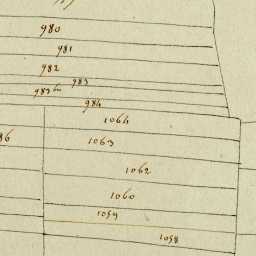 980
981
982
983
983bis
984
1064
1063
1062
1060
1059
1058